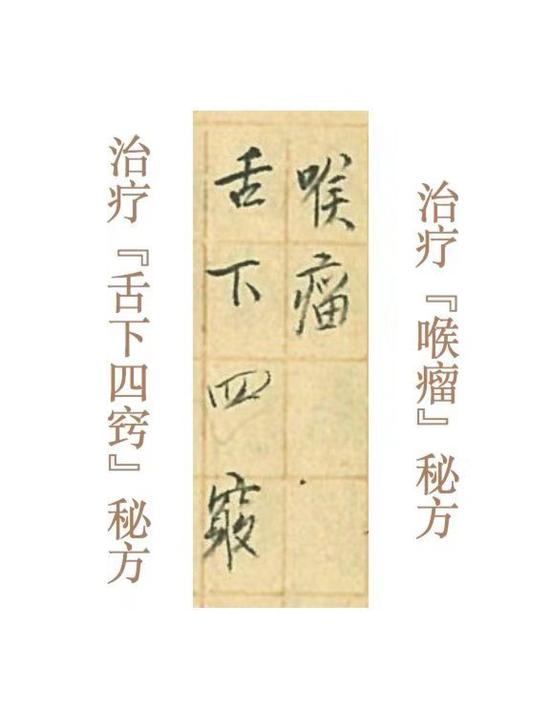 治疗『喉瘤』秘方
喉瘤
舌下四窍
治疗『舌下四窍』秘方